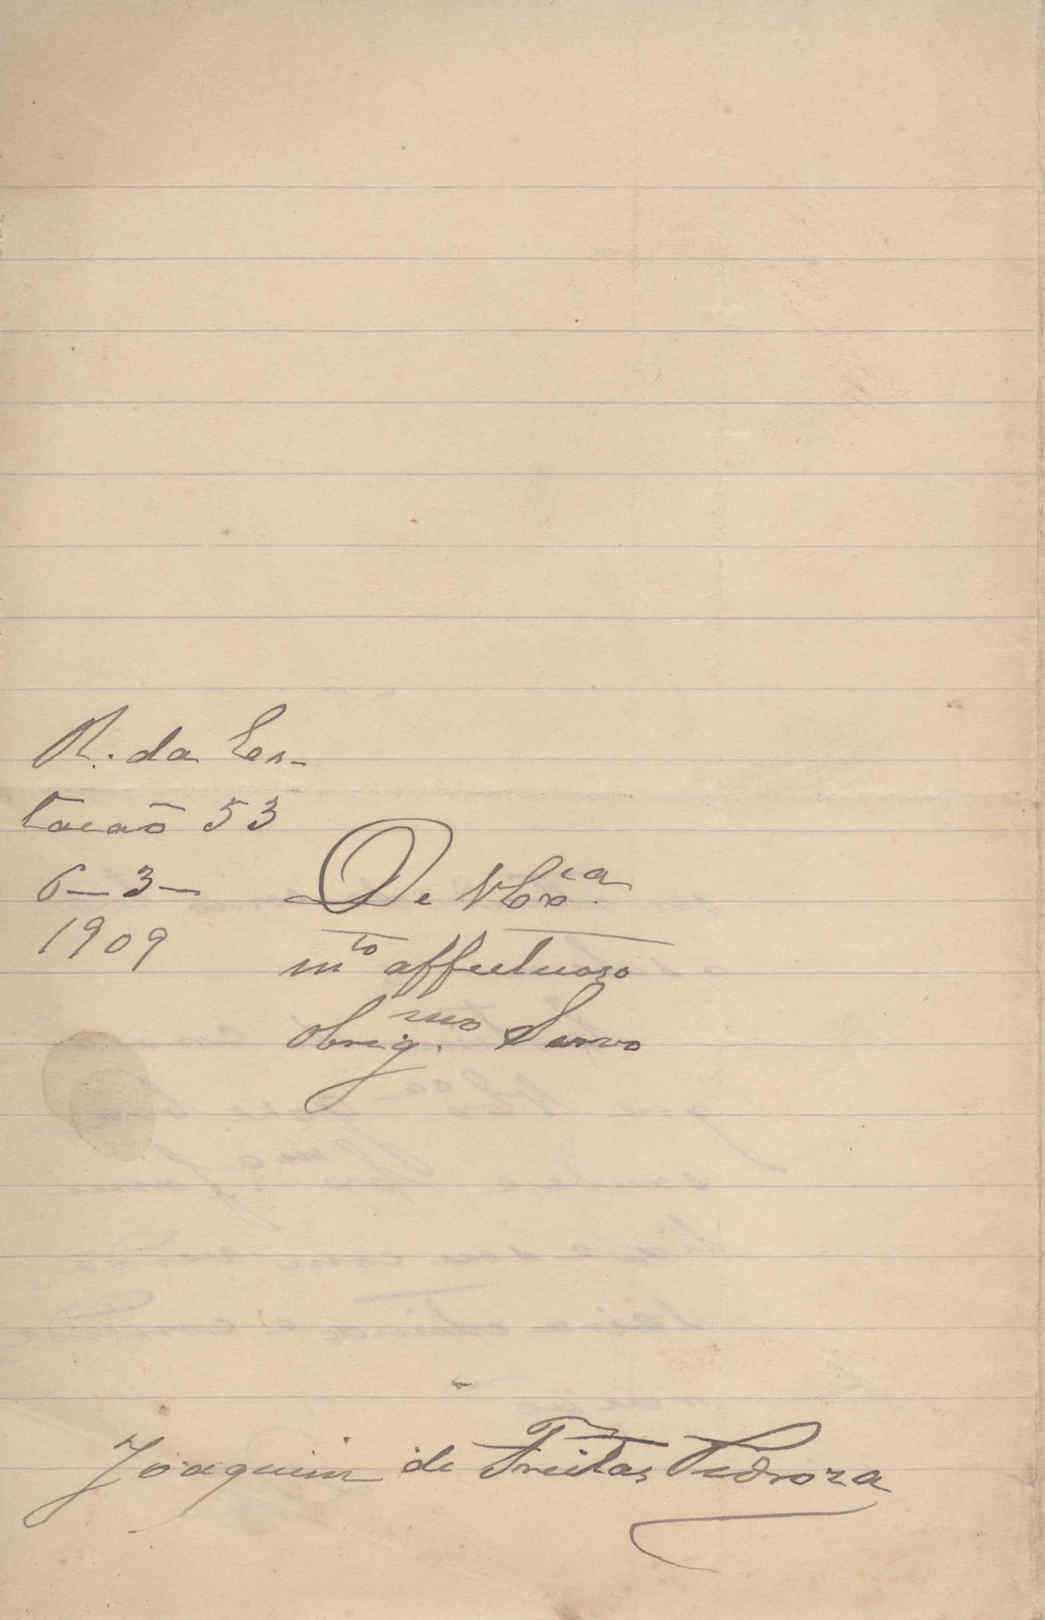 R. da Es-
tacaõ 53
6-3-
1909
De V Ex.cia
mto affectuoso
obrig.mo Servo
Joaquim de Freitas Pedroza